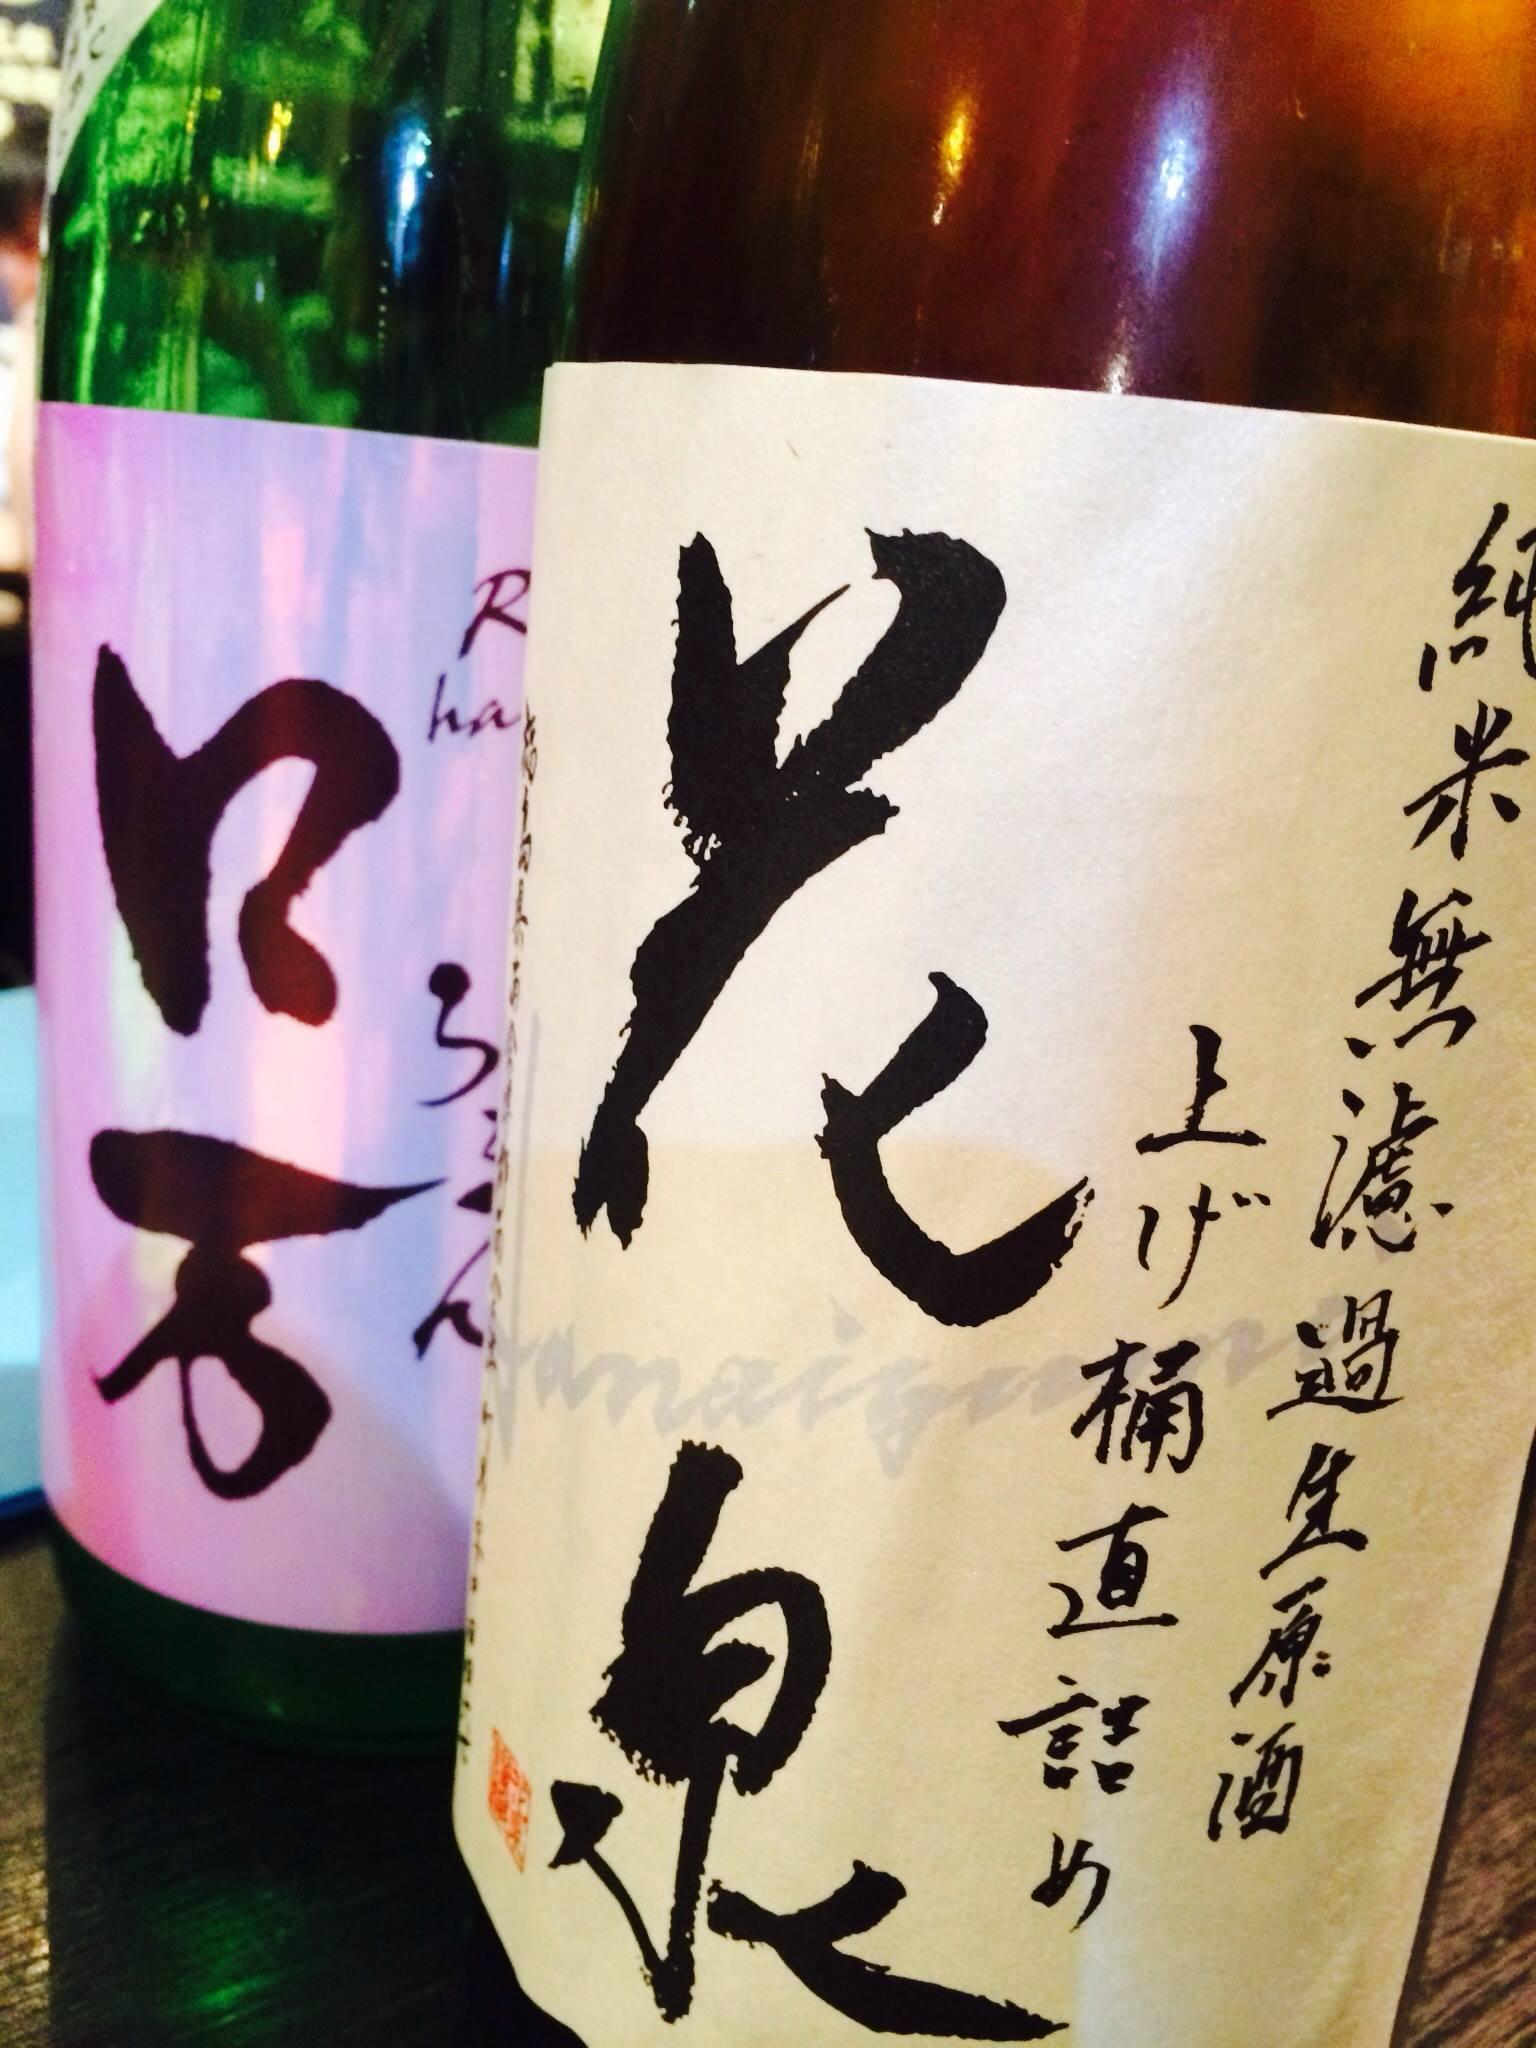 純米無濾過生原酒
上げ桶直詰め
花泉
Hanaizumi
R
ha
ろまん
ロ万